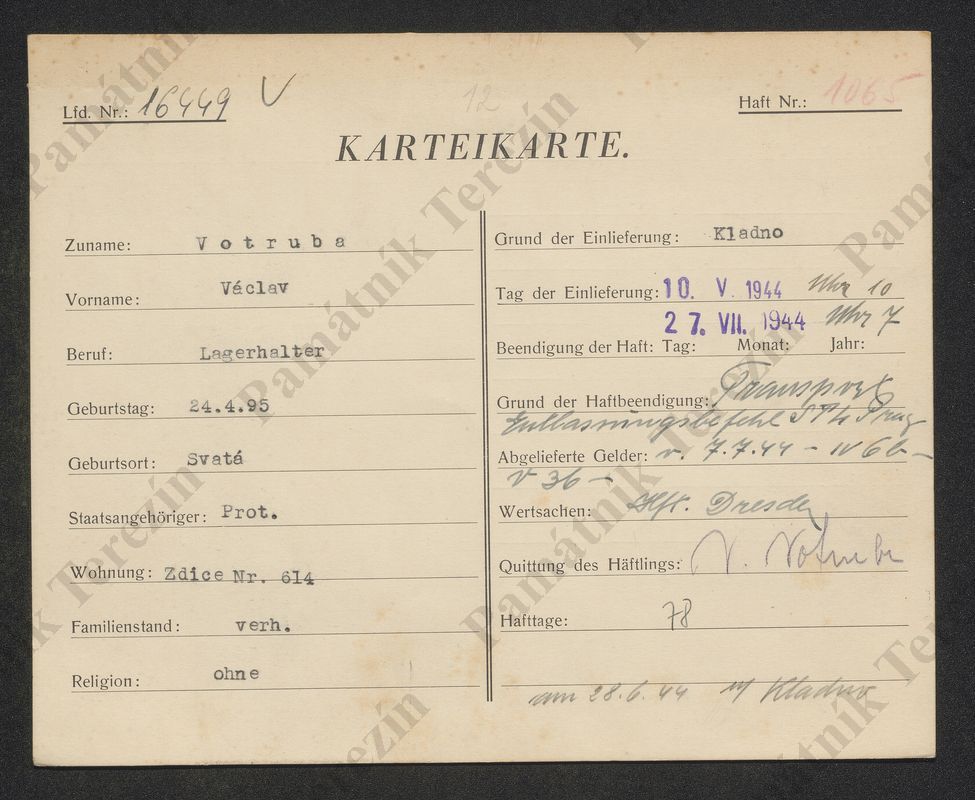 Lfd. Nr.: 16449 V
12
Haft Nr.: 1065
KARTEIKARTE.
Zuname: Votruba
Vorname: Václav
Beruf: Lagerhalter
Geburtstag: 24.4.95
Geburtsort: Svatá
Staatsangehöriger: Prot.
Wohnung: Zdice Nr. 614
Familienstand: verh.
Religion: ohne
Grund der Einlieferung: Kladno
Tag der Einlieferung: 10. V. 1944 Uhr 10
27. VII. 1944 Uhr 7
Beendigung der Haft: Tag: Monat: Jahr:
Grund der Haftbeendigung: Transport
Entlassungsbefehl Prag
Abgelieferte Gelder: v. 7.7.44 - IV 6b -
V 36 -
Wertsachen: Dresden
Quittung des Häftlings: V. Votruba
Hafttage: 78
am 28.6.44 Kladno
Památník Terezín
Památník Terezín
Památník Terezín
Památník Terezín